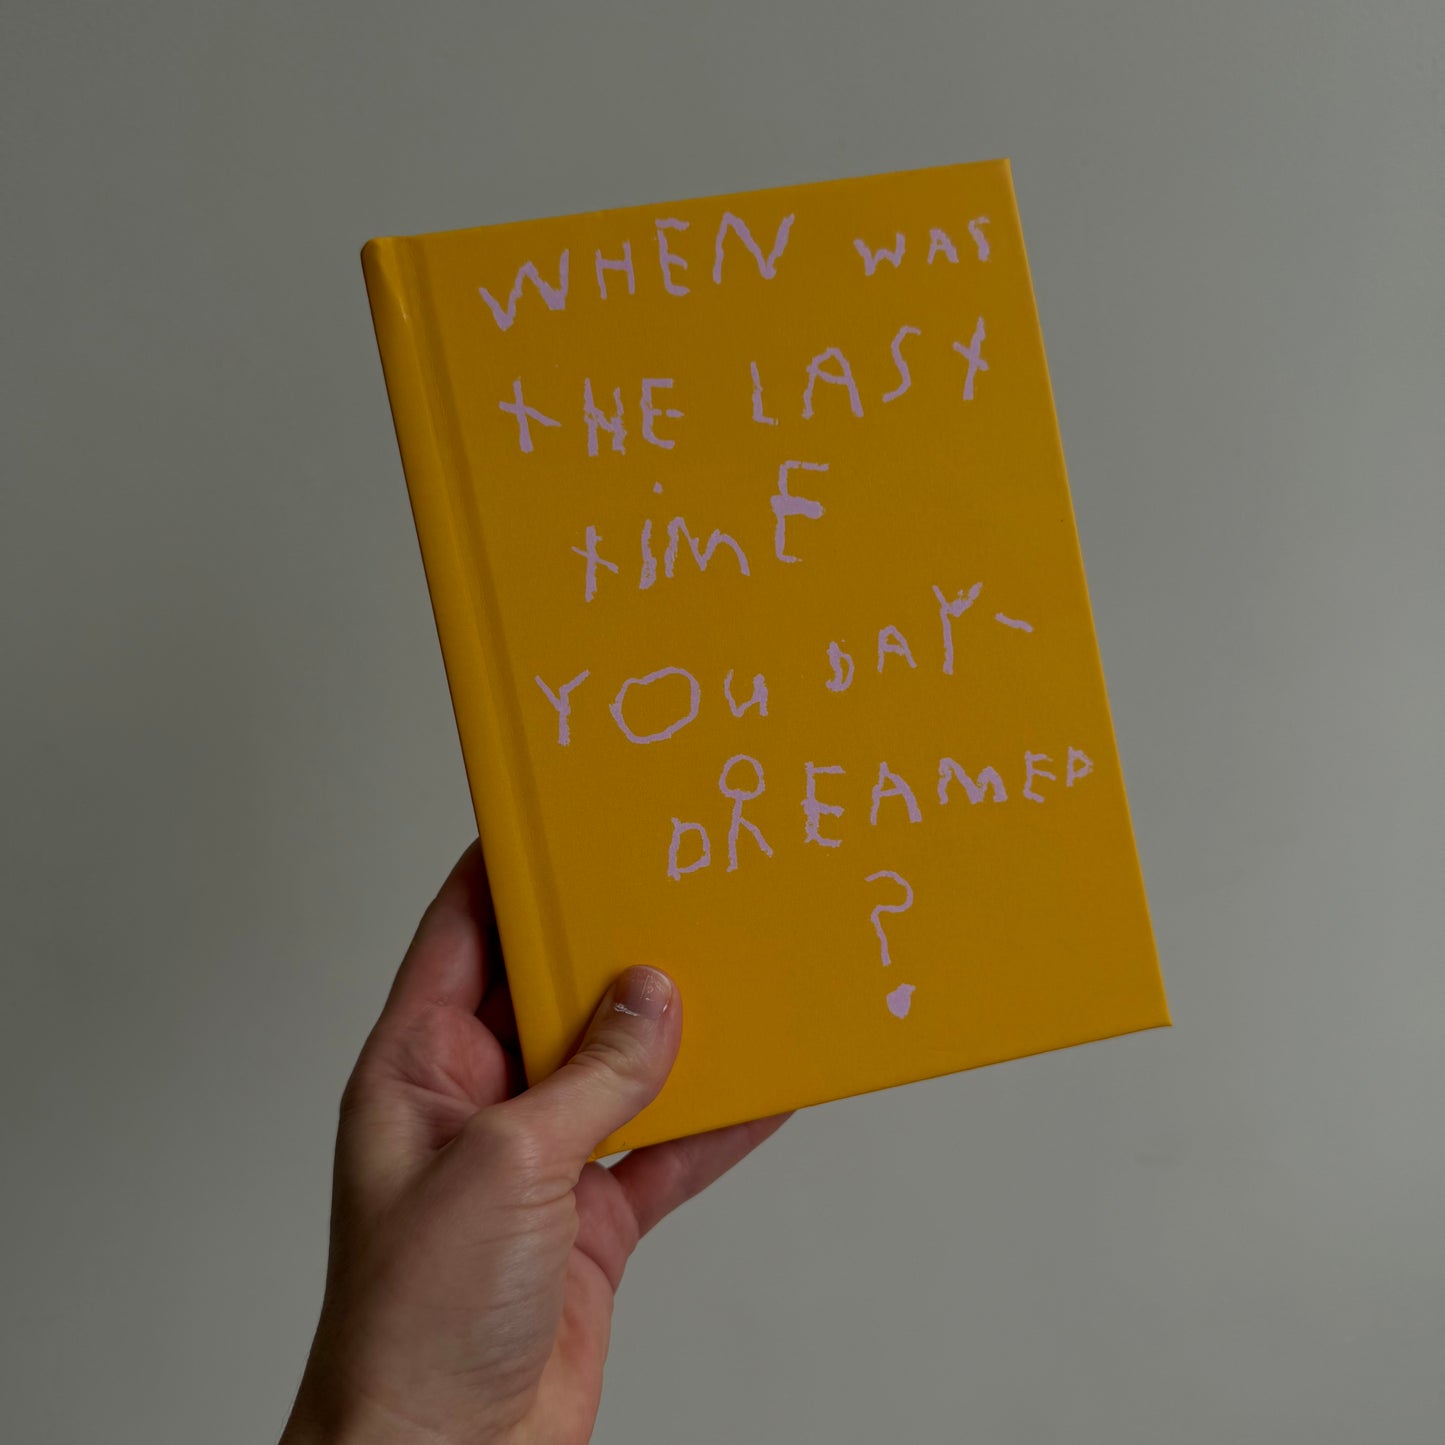 WHEN WAS
THE LAST
TiME
YOU DAY-
DREAMED
?